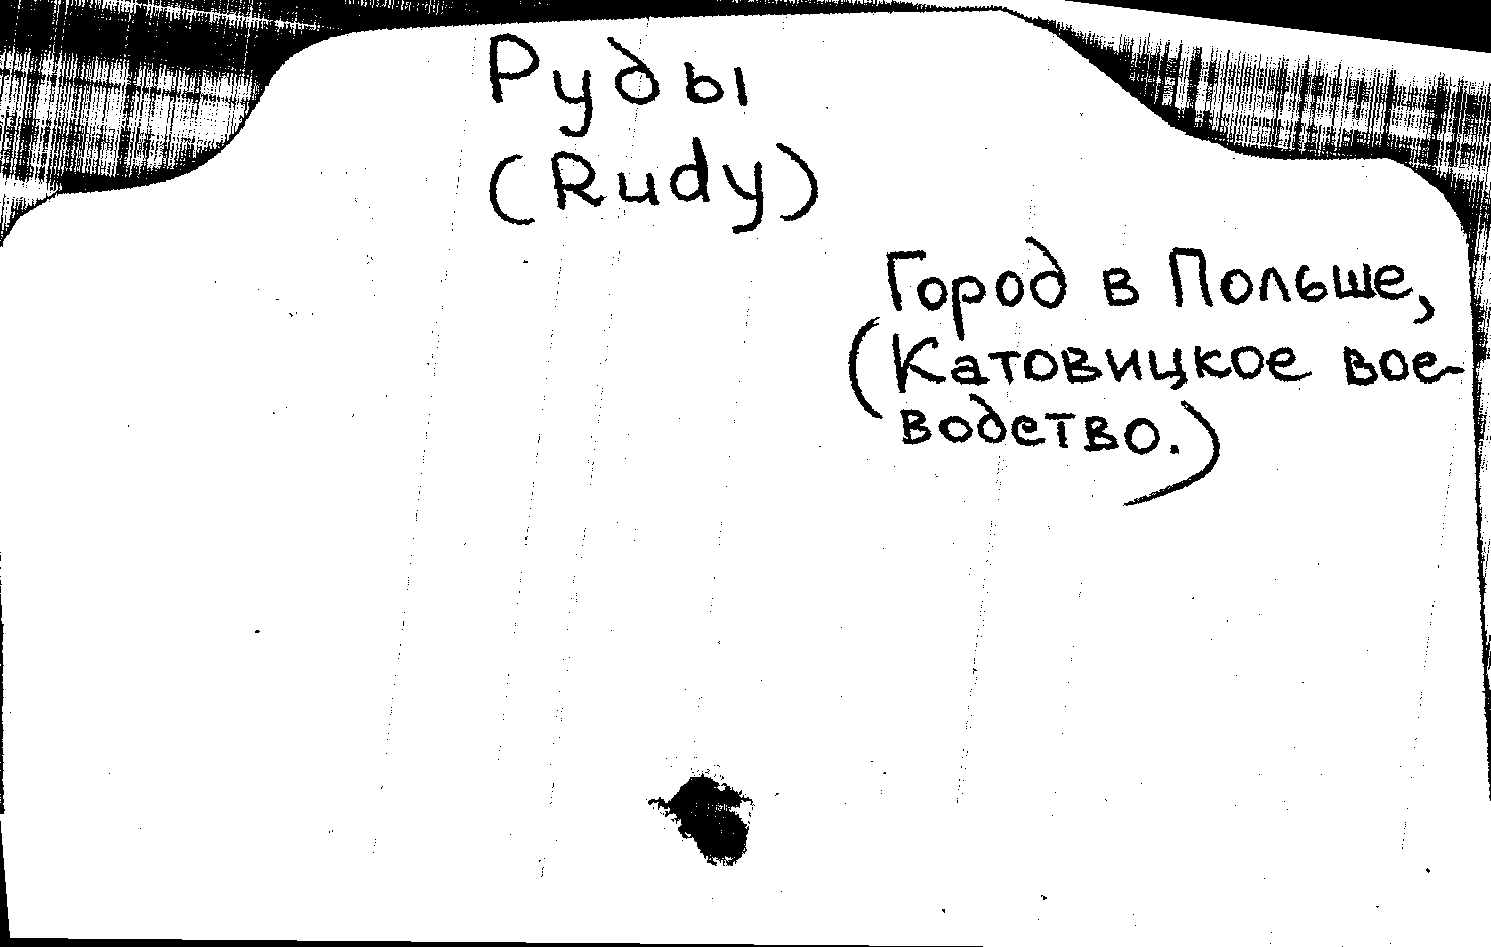 Руды
(Rudy)
Город в Польше,
(Катовицкое вое-
водство.)